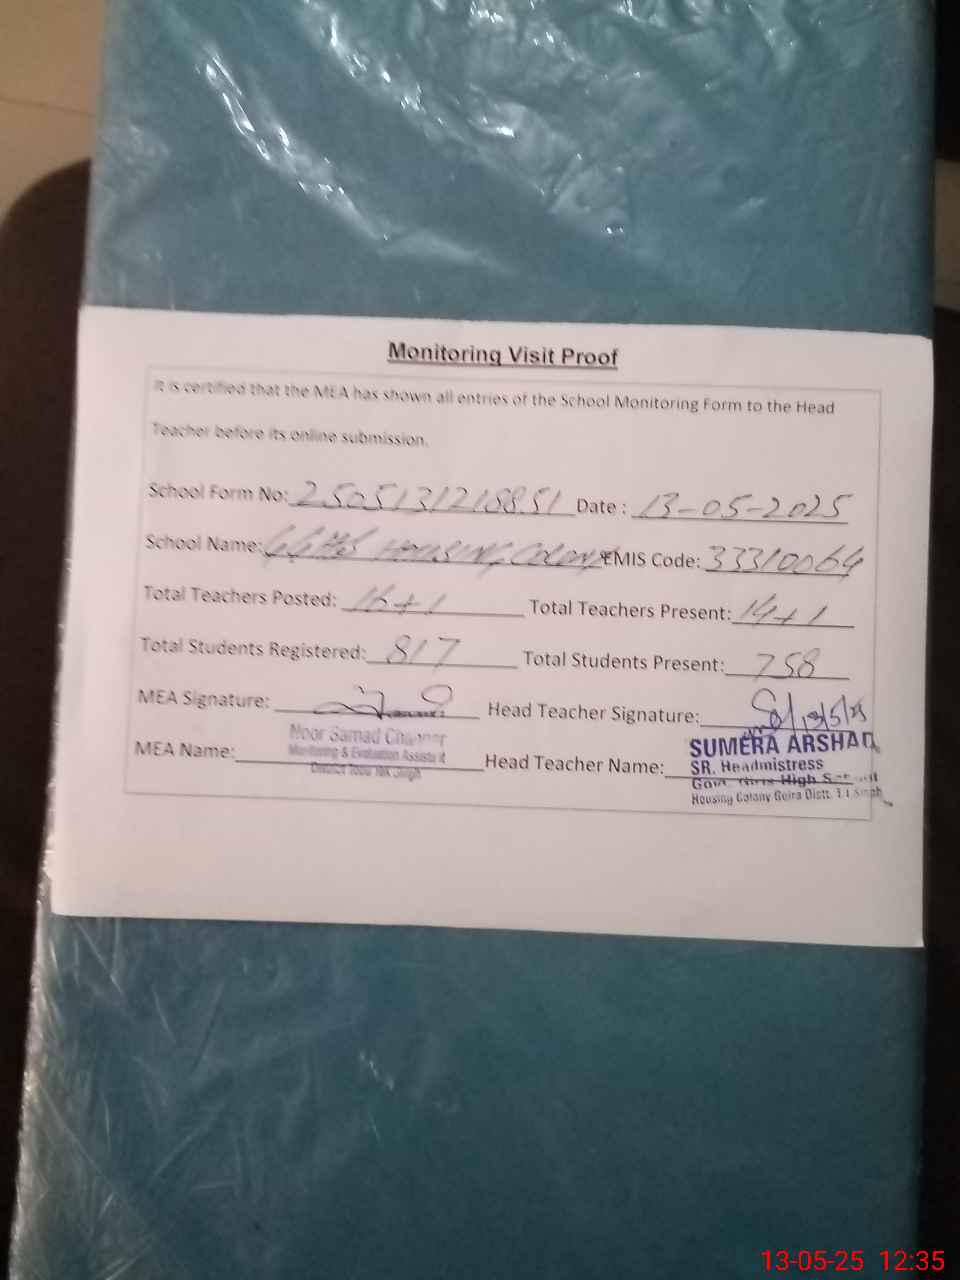 Monitoring Visit Proof
It is certified that the MEA has shown all entries of the School Monitoring Form to the Head
Teacher before its online submission.
School Form No: 2505131218851 Date : 13-05-2025
School Name: GGHS HOUSING COLONY EMIS Code: 33310064
Total Teachers Posted: 16+1 Total Teachers Present: 14+1
Total Students Registered: 817 Total Students Present: 758
MEA Signature: Head Teacher Signature: 13/5/25
MEA Name: Noor Samad Head Teacher Name: SUMERA ARSHAD
Monitoring & Evaluation Assistant
District Toba Tek Singh
SR. Headmistress
Govt. Girls High School
Housing Colony Gojra Distt. T.T Singh
13-05-25 12:35